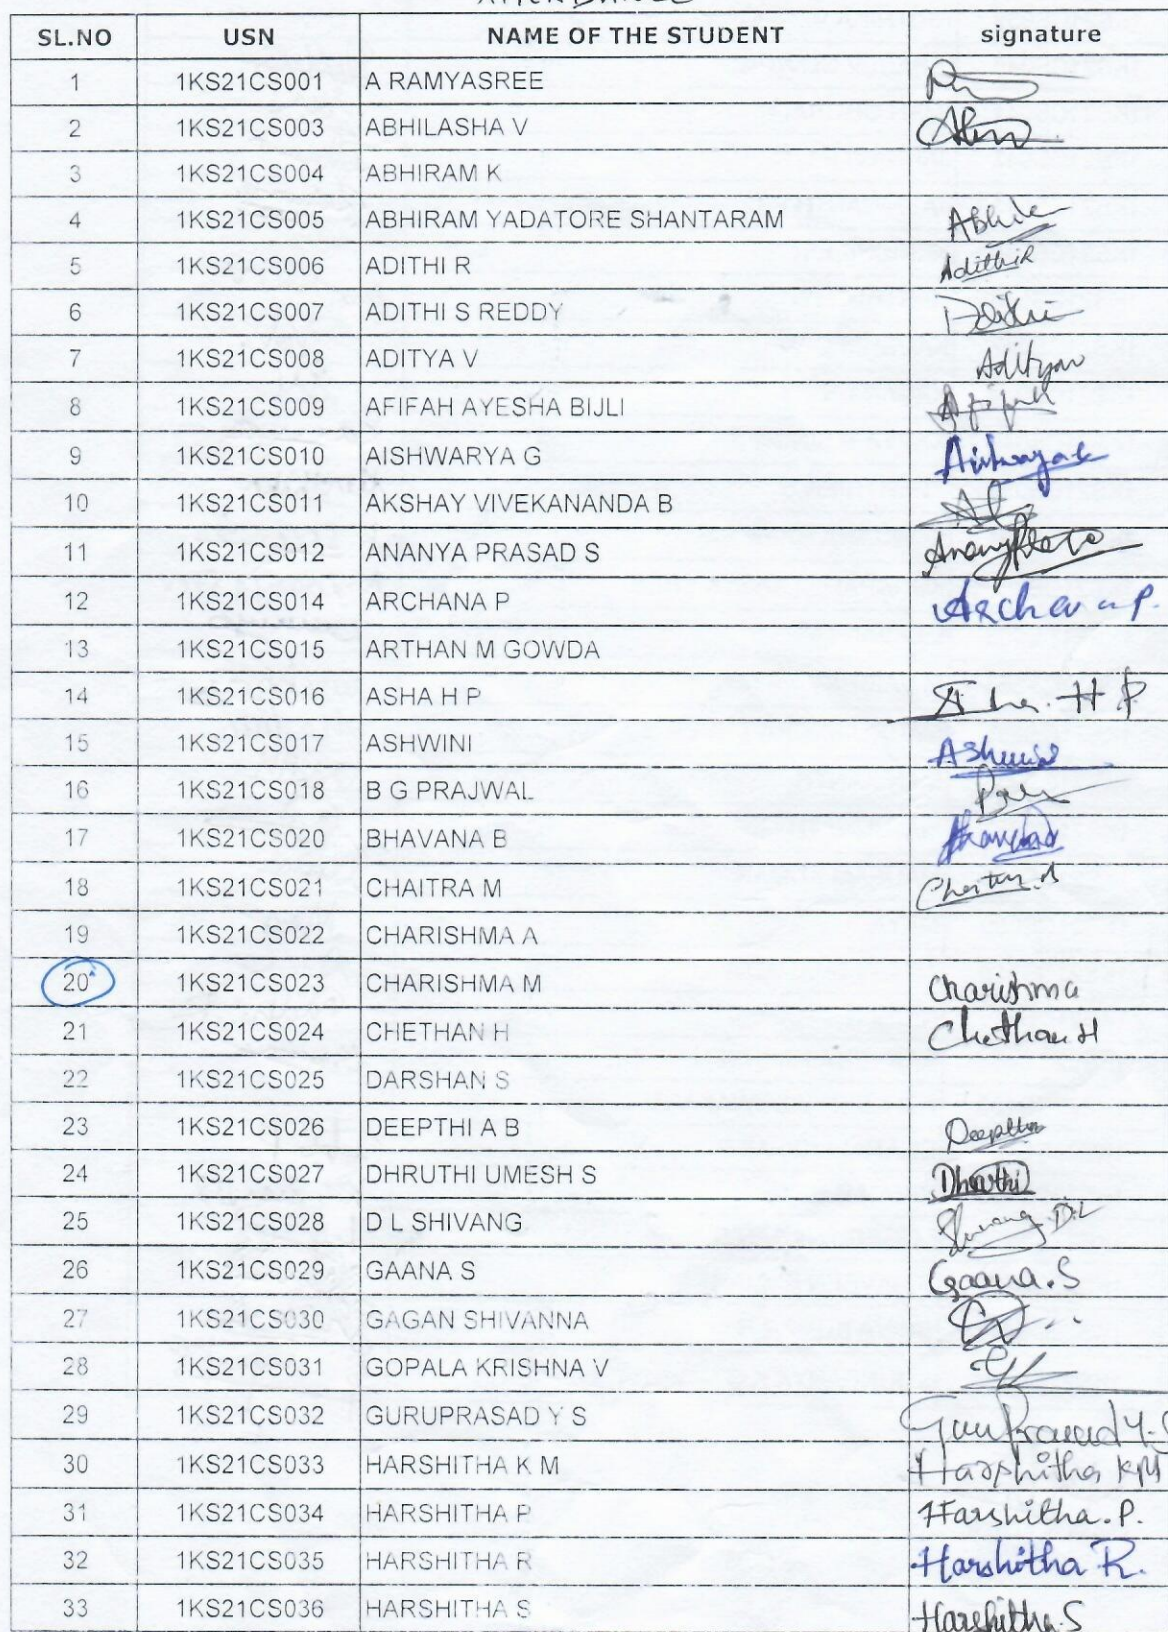 SL.NO USN NAME OF THE STUDENT signature
1 1KS21CS001 A RAMYASREE
2 1KS21CS003 ABHILASHA V
3 1KS21CS004 ABHIRAM K
4 1KS21CS005 ABHIRAM YADATORE SHANTARAM
5 1KS21CS006 ADITHI R AdithiR
6 1KS21CS007 ADITHI S REDDY
7 1KS21CS008 ADITYA V
8 1KS21CS009 AFIFAH AYESHA BIJLI
9 1KS21CS010 AISHWARYA G
10 1KS21CS011 AKSHAY VIVEKANANDA B
11 1KS21CS012 ANANYA PRASAD S
12 1KS21CS014 ARCHANA P Archana P.
13 1KS21CS015 ARTHAN M GOWDA
14 1KS21CS016 ASHA H P Asha. H P
15 1KS21CS017 ASHWINI Ashwini
16 1KS21CS018 B G PRAJWAL
17 1KS21CS020 BHAVANA B
18 1KS21CS021 CHAITRA M
19 1KS21CS022 CHARISHMA A
20 1KS21CS023 CHARISHMA M Charishma
21 1KS21CS024 CHETHAN H Chethan H
22 1KS21CS025 DARSHAN S
23 1KS21CS026 DEEPTHI A B Deepthi
24 1KS21CS027 DHRUTHI UMESH S Dhruthi
25 1KS21CS028 D L SHIVANG Shivang D.L
26 1KS21CS029 GAANA S Gaana.S
27 1KS21CS030 GAGAN SHIVANNA
28 1KS21CS031 GOPALA KRISHNA V
29 1KS21CS032 GURUPRASAD Y S Guruprasad Y.S
30 1KS21CS033 HARSHITHA K M Harshitha KM
31 1KS21CS034 HARSHITHA P Harshitha.P.
32 1KS21CS035 HARSHITHA R Harshitha R.
33 1KS21CS036 HARSHITHA S Harshitha.S